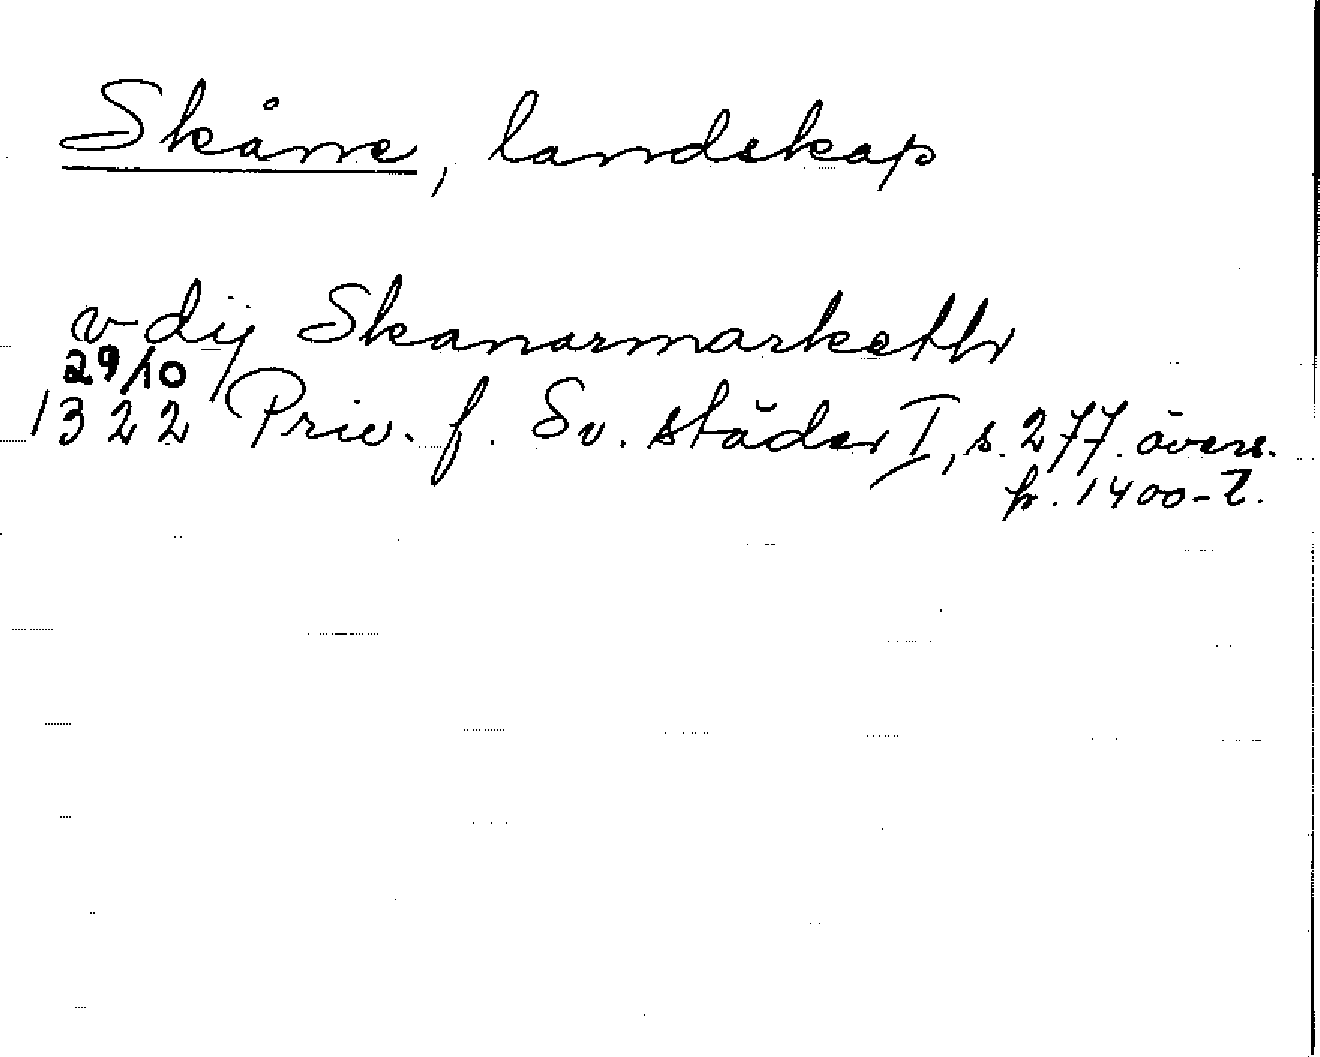 Skåne, landskap
v dij Skanarmarketh
29/10
1322 Priv. f. Sv. städer I, s. 277. övers.
fr. 1400-t.